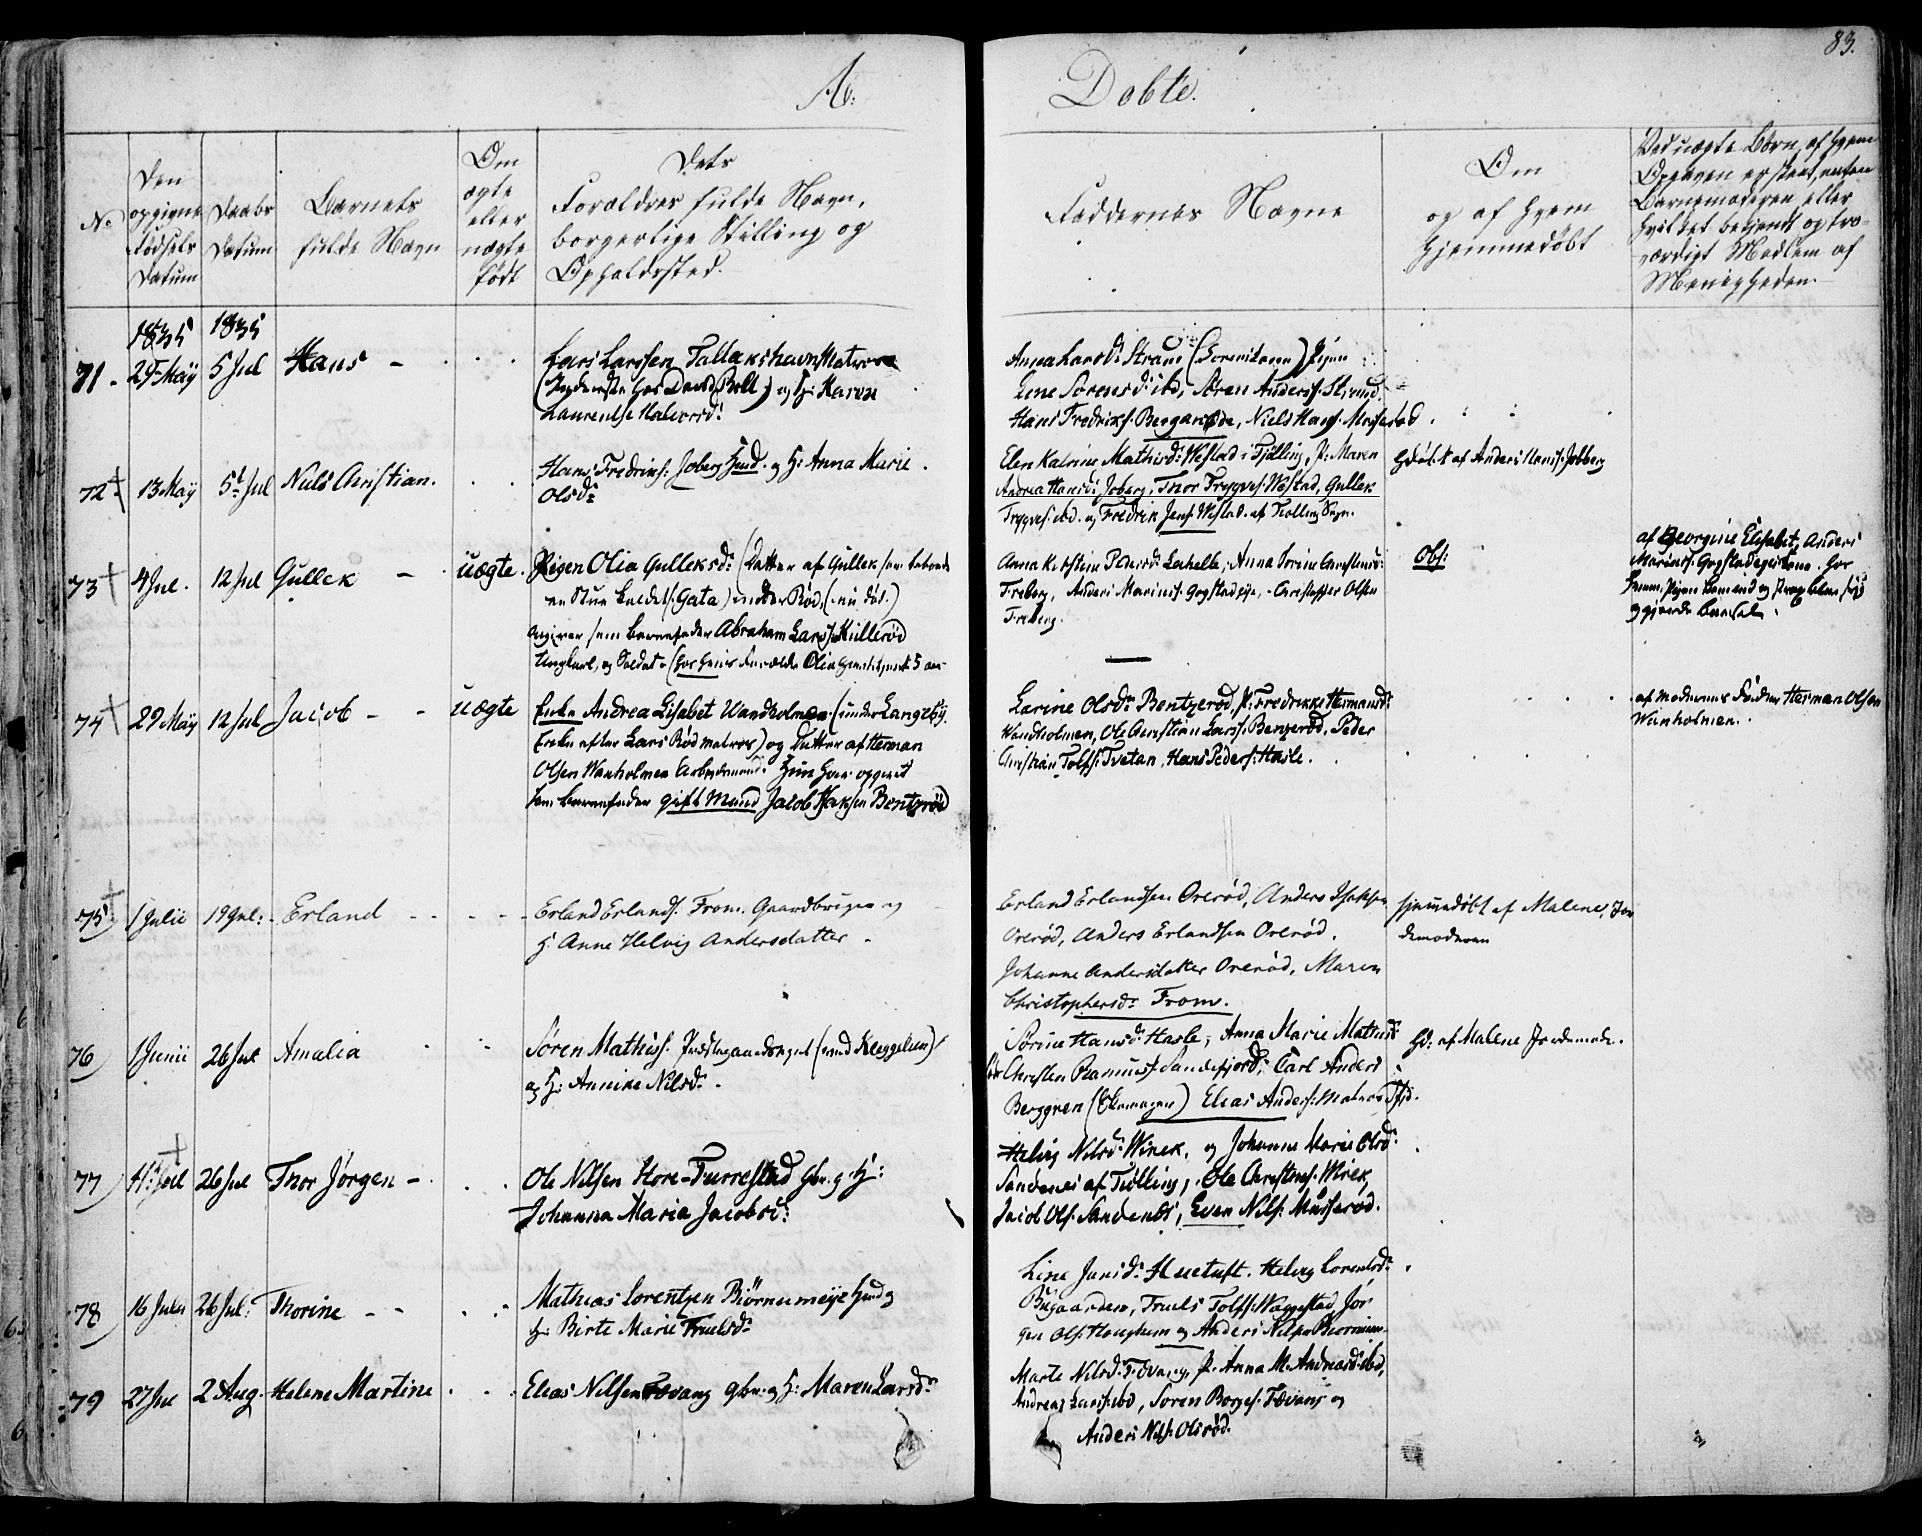 A:
Døbte.
83.
No
Den opgivne Fødsels Datum
Daabs Datum
Barnets fulde Navn
Om ægte eller uægte født
Dets Forældres fulde Navn, borgerlige Stilling og Opholdssted.
Faddernes Navne
Om og af hvem hjemmedøbt
Ved uægte Børn, af hvem Opgaven er skeet, enten Barnemoderen eller hvilket bekjendt og troværdigt Medlem af Menigheden.
1835 1835
71 29 May 5 Jul Hans
Lars Larssen Tallakshavn Matros
og H: Karen
Laurentse Halvorsd:
Anna Larsd: Strand
Lene Sørensd: ibd, Søren Anderss: Strand
Hans Fredriks: Bergan, Niels Hans:
72 13 May 5t Jul Niels Christian.
Hans Fredriks: Joberg Hmd. og H: Anna Marie
Olsd:
Elen Katrine Mathisd: Westad i Tjølling, P: Maren
Andrea Hansd: Joberg, Thor Trygves: Westad, Gullek
Trygves: ibd. og Fredrik Jens: Westad af Tjølling Sogn.
af Anders Hans: Jobberg
73 4 Jul. 12 Jul Gullek uægte.
Pigen Olia Gulleksd: (Datter af Gullek som beboede
en Stue kaldet Gata) under Rød, (nu død.)
Angiver som barnefader Abraham Larss: Hullerød
Ungkarl, og Soldat
Anna Kirstine Pedersd: Lahelle, Anna Sørine Christensd:
Freberg, Anders Marinius: Gogstadeje, Christoffer Olsen
Freberg.
Obs:
af Georgine Elisabet, Anders
Marinius: Gogstadeje
74 29 May 12 Jul Jacob uægte
Enke Andrea Lisabet Wandholmen (under Langeby.
Enke efter Lars Rød matros) og Datter af Herman
Olsen Wanholmen Arbeidsmand. Hun har opgivet
som barnefader gift Mand Jacob Isaksen Bentzerød
Larine Olsd: Bentzerød, P: Fredrikke Hermansd:
Wandholmen, Ole Christian Larss: Benzerød, Peder
Christian Tolfs: Tvetan, Hans Peders: Hasle.
af moderens Fader Herman Olsen
Wanholmen.
75 1 Julii 19 Jul: Erland
Erland Erlands: From, Gaardbruger og
H: Anne Helvig Andersdatter
Erland Erlandsen Orerød, Anders Isaksen
Orerød, Anders Erlandsen Orerød.
Johanne Andersdatter Orerød, Maren
Christophersd: From.
hjemmedøbt af Malene, Jor
demoderen
76 1 Junii 26 Jul Amalia
Søren Mathis:
og H: Annike Nilsd:
Sørine Hansd: Hasle, Anna Marie Mathisd:
Christen Rasmuss: Sandefjord, Carl Anders
Berggren Elias Anders: Matros
Hd: af Malene Jordemoder.
77 11 Jul 26 Jul Thor Jørgen
Ole Nilsen Hore-Furrestad gbr. og H:
Johanna Maria Jacobsd:
Helvig Nilsd: Wirek, og Johanne Marie Olsd:
Sandenes af Tjølling, Ole Christens: Wirek
Jacob Ols: Sandenes, Even Nils: Musserød.
78 16 Juli 26 Jul: Thorine
Mathias Lorentzen Biørnumeye Hmd og
H: Birte Marie Truelsd:
Line Jansd: Huetuft. Helvig Lorentsd:
Bugaarden, Truels Tolfs: Waggestad, Jør
gen Ols: Haughem og Anders Nilsen
79 27 Jul 2 Aug. Helene Martine
Elias Nilsen Fevang gbr. og H: Maren Larsd:
Marte Nilsd: Fevang, P. Anna M. Andreasd: ibd,
Andreas Larss: ibd, Søren Borges: Fevang og
Anders Nils: Olsrød.